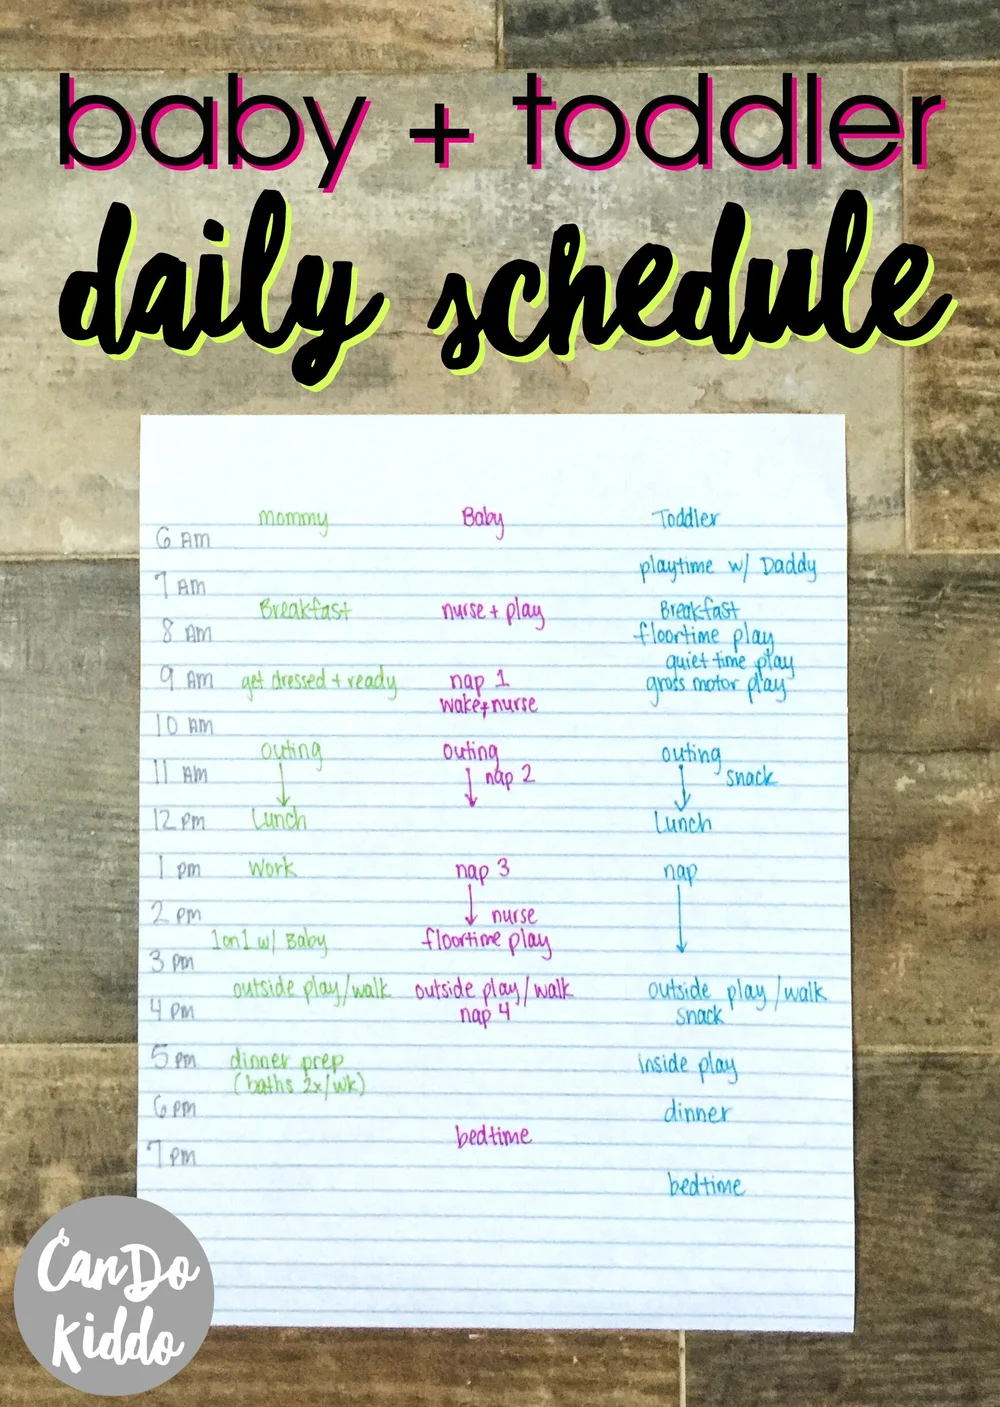 baby + toddler
daily schedule
mommy Baby Toddler
6 AM
playtime w/ Daddy
7 AM
Breakfast nurse + play Breakfast
8 AM floortime play
quiet time play
9 AM get dressed + ready nap 1 gross motor play
wake + nurse
10 AM
outing outing outing
11 AM nap 2 snack
12 pm Lunch Lunch
1 pm Work nap 3 nap
2 pm nurse
1 on 1 w/ Baby floortime play
3 pm
outside play/walk outside play/walk outside play/walk
4 pm nap 4 snack
5 pm dinner prep inside play
(baths 2x/wk)
6 pm dinner
bedtime
7 pm
bedtime
CanDo
Kiddo